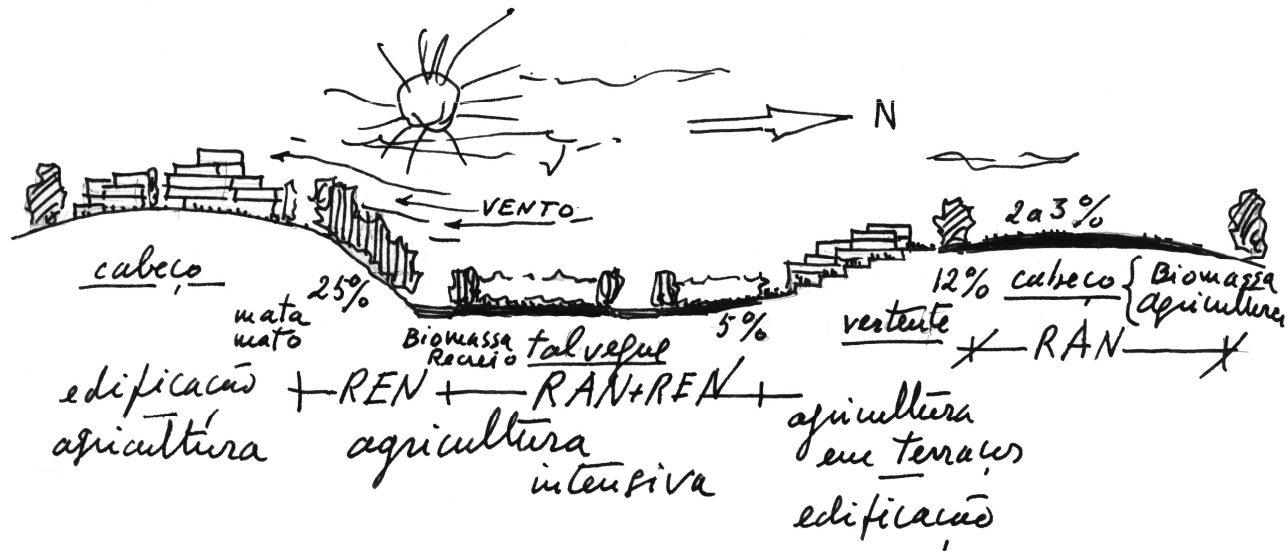 N
VENTO
2 a 3%
cabeço
25%
mata
mato
Biomassa
Recreio
talvegue
5%
12%
vertente
cabeço
Biomassa
agricultura
RAN
edificação
agricultura
REN
RAN+REN
agricultura
intensiva
agricultura
em terraços
edificação